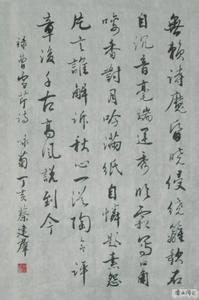 無賴詩魔昏曉侵繞籬欹石
自沉音毫端運秀臨霜寫口角
噙香對月吟滿紙自憐題素怨
片言誰解訴秋心一從陶令評
章後千古高風說到今
錄曹雪芹詩 詠菊 丁亥 蔡建群